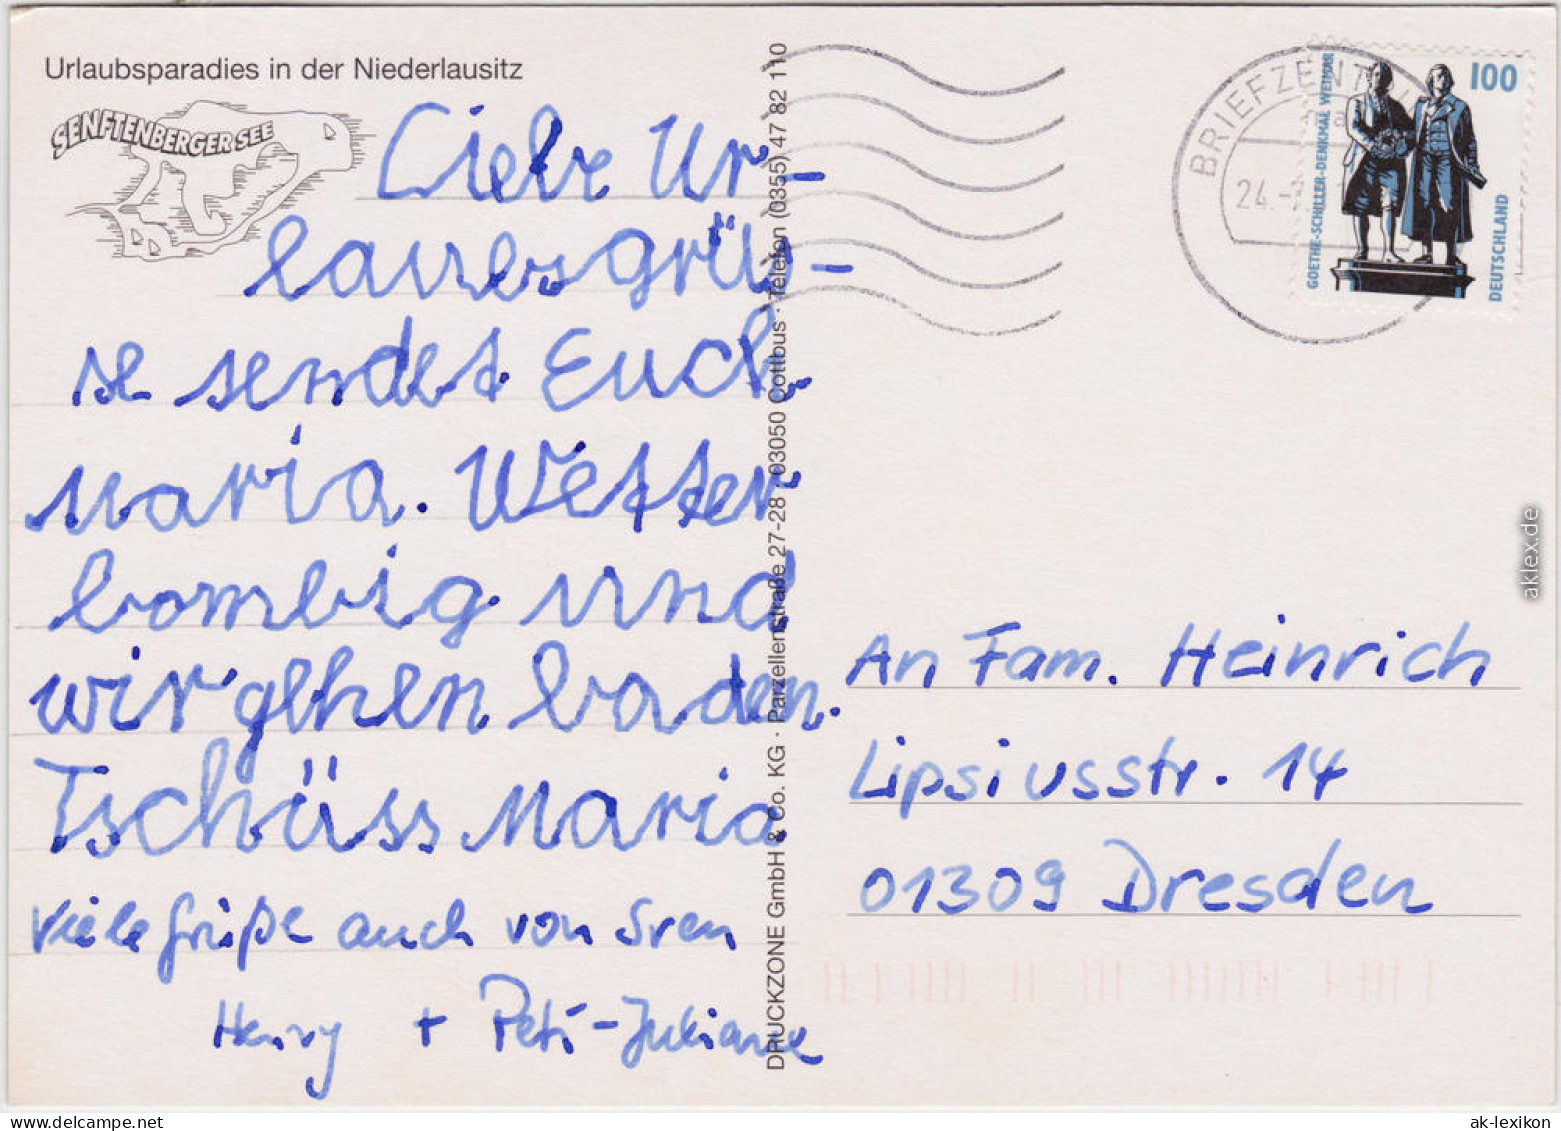 Urlaubsparadies in der Niederlausitz
SENFTENBERGER SEE
Liebe Ur-
laubsgrü-
se sendet Euch
Maria. Wetter
bombig und
wir gehen baden.
Tschüss Maria
Viele Grüße auch von Sven
Henry + Peti-Juliane
DRUCKZONE GmbH & Co. KG · Parzellenstraße 27-28 · 03050 Cottbus · Telefon (0355) 47 82 110
BRIEFZENT
24.
100
GOETHE-SCHILLER-DENKMAL WEIMAR
DEUTSCHLAND
An Fam. Heinrich
Lipsiusstr. 14
01309 Dresden
aklex.de
ak-lexikon